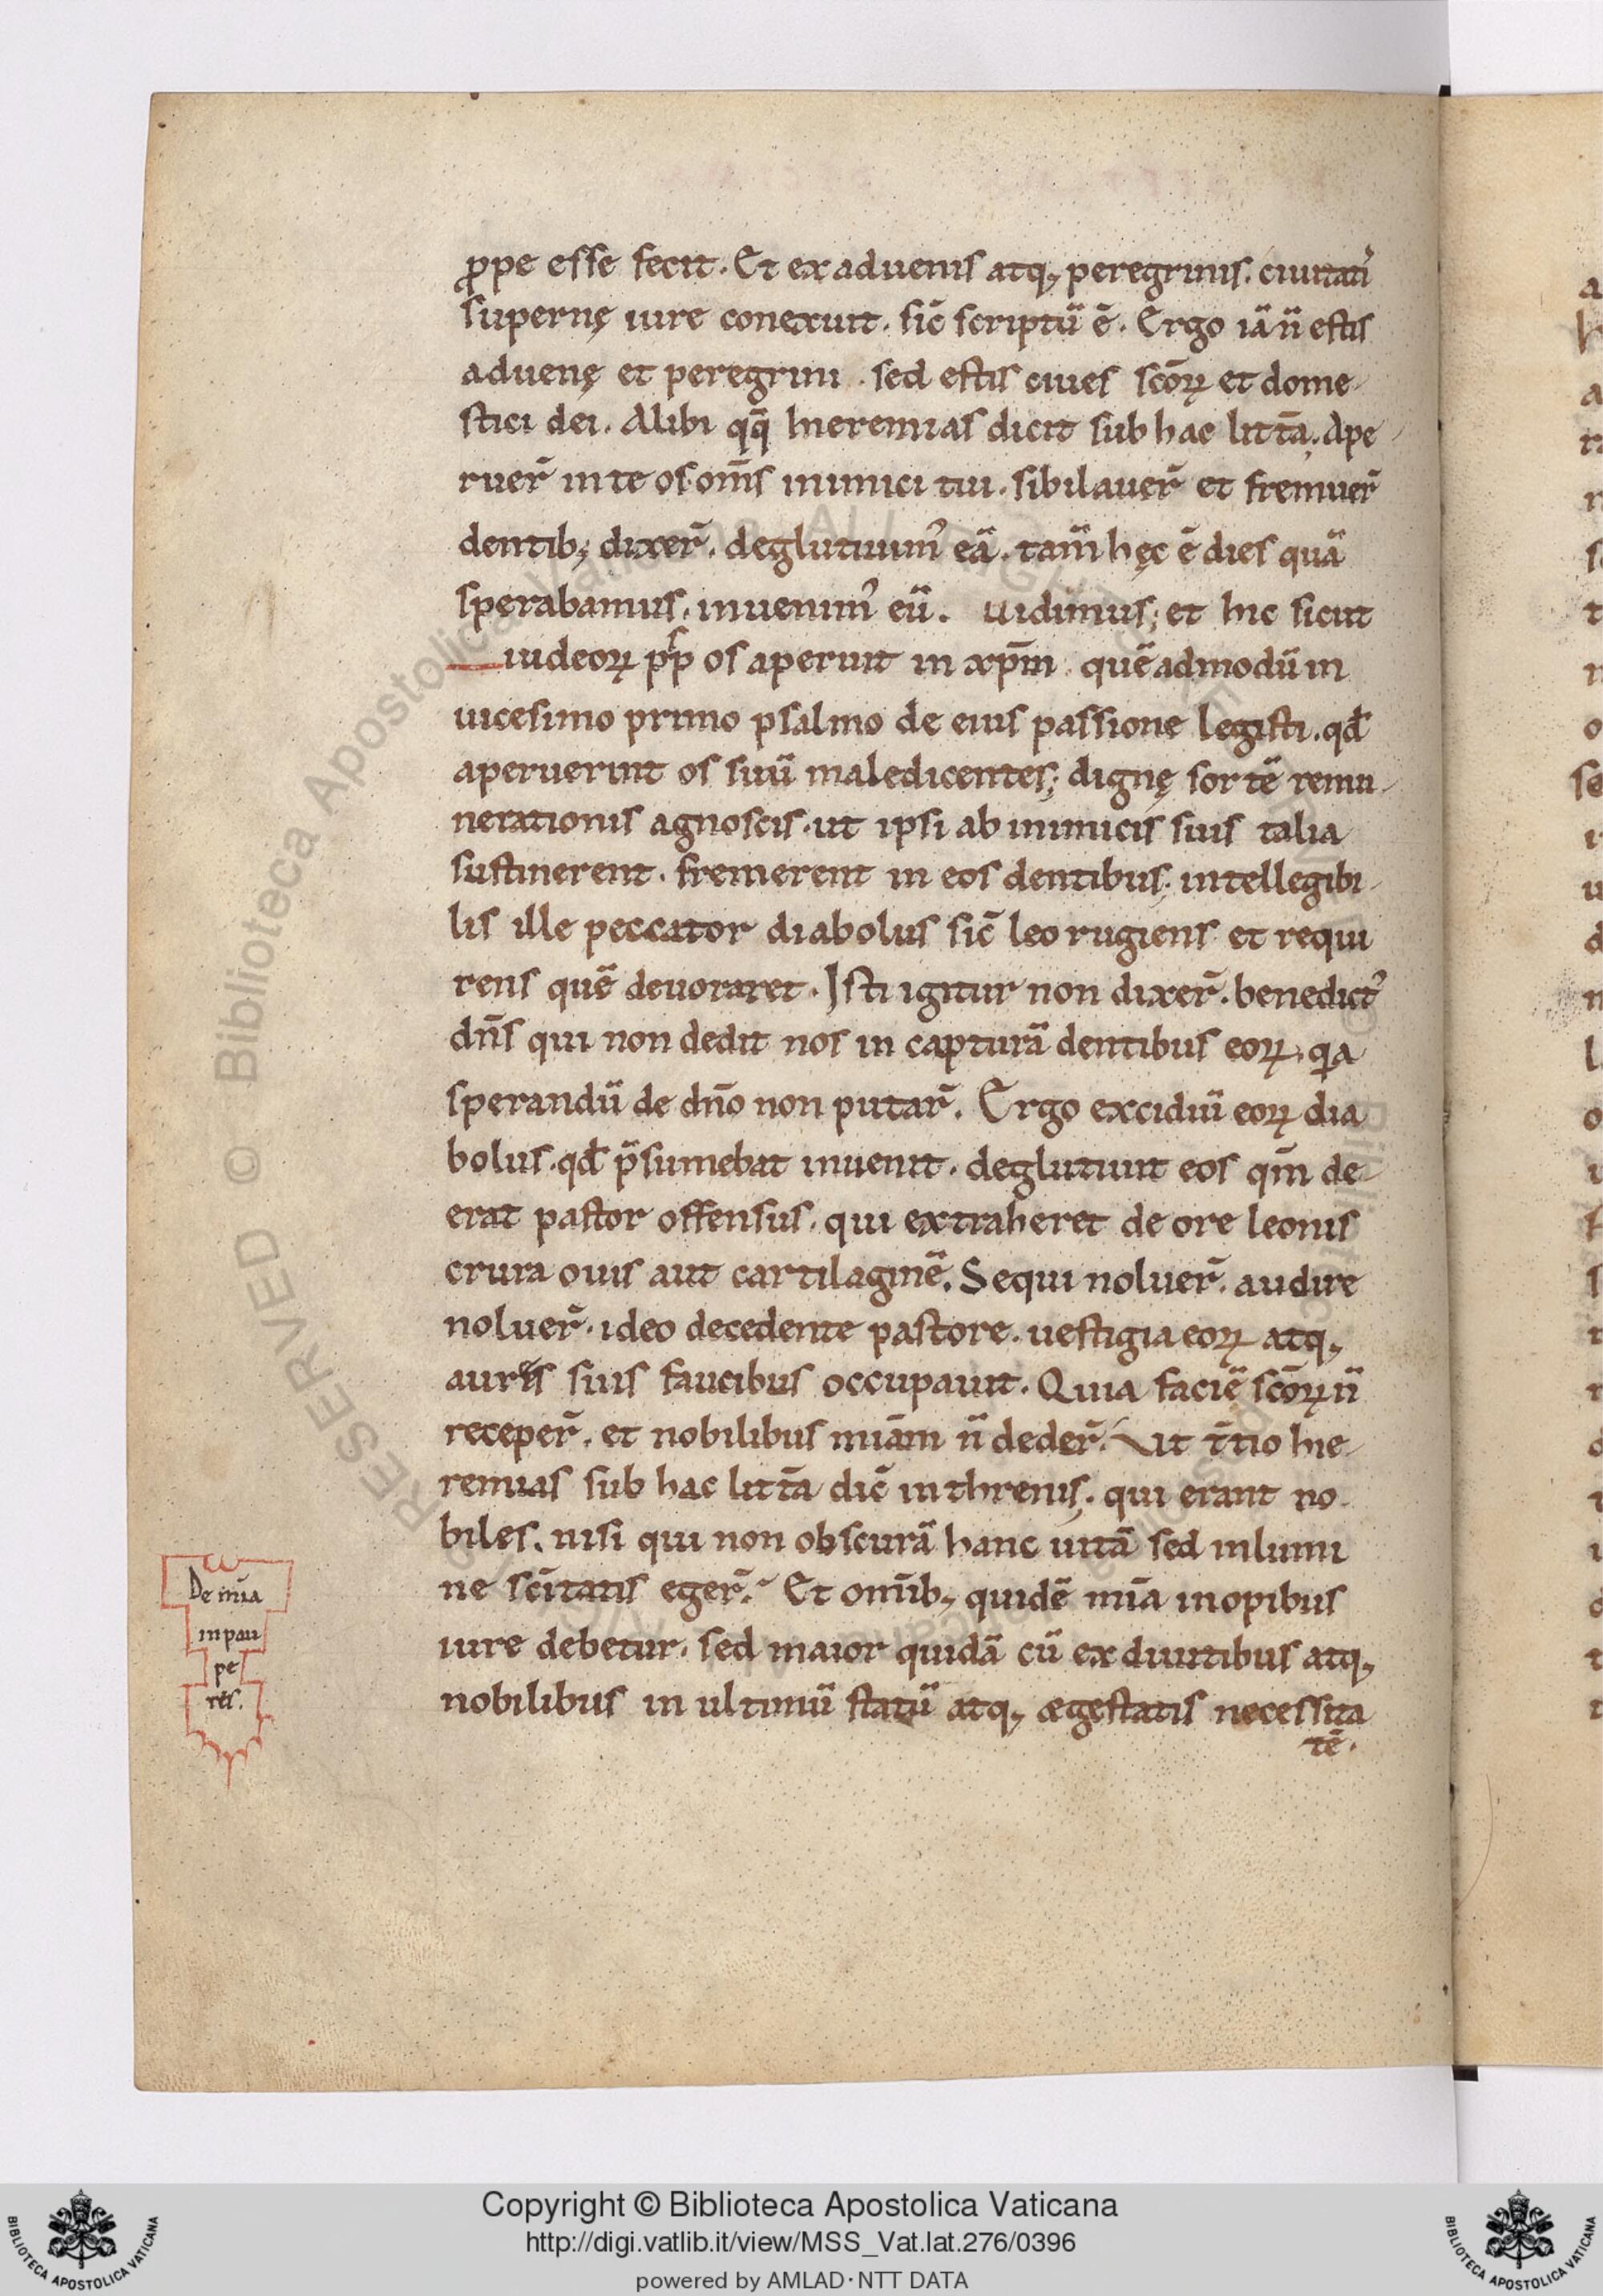 ꝓpe esse fecit. Et ex aduenis atq; peregrinis. ciuitati᷒
supernę iure conexuit. sic̄ scriptū ē. Ergo iā n̄ estis
aduenę et peregrini. sed estis ciues sc̄oꝝ et dome-
stici dei. Alibi qq̄ hieremias dicit sub hac litt̄a. Ape-
ruer̄ in te os om̄s inimici tui. sibilauer̄ et fremuer̄
dentib; dixer̄. deglutiuim᷒ eā. tam̄ hęc ē dies quā
sperabamus. inuenim᷒ eū. uidimus; et hic sicut
iudeoꝝ pp̄ os aperuit in xp̄m quēadmodū in
uicesimo primo psalmo de eius passione legisti. qd̄
aperuerint os suū maledicentes; dignę sortē remu-
nerationis agnoscis. ut ipsi ab inimicis suis talia
sustinerent. fremerent in eos dentibus; intellegibi-
lis ille peccator diabolus sic̄ leo rugiens et requi
rens quē deuoraret. Isti igitur non dixer̄. benedict᷒
dn̄s qui non dedit nos in capturā dentibus eoꝝ. qia
sperandū de dn̄o non putar̄. Ergo excidiū eoꝝ dia
bolus. qd̄ p̄sumebat inuenit. deglutiuit eos qm̄ de-
erat pastor offensus. qui extraheret de ore leonis
crura ouis aut cartilaginē. Sequi noluer̄. audire
noluer̄. ideo decedente pastore. uestigia eoꝝ atq;
aures suis faucibus occupauit. Quia faciē sc̄oꝝ n̄
receper̄. et nobilibus miām n̄ deder̄. Vt t̄tio hie-
remias sub hac litt̄a dic̄ in threnis. qui erant no-
biles. nisi qui non obscurā hanc uitā sed inlumi
ne sc̄itatis eger̄. Et om̄ib; quidē mīa inopibus
iure debetur. sed maior quidā cū ex diuitibus atq;
nobilibus in ultimū statū atq; ægestatis necessita
tē.
De mīa
in pau
pe
res.
© Biblioteca Apostolica Vaticana ALL RIGHTS RESERVED
Copyright © Biblioteca Apostolica Vaticana
http://digi.vatlib.it/view/MSS_Vat.lat.276/0396
powered by AMLAD·NTT DATA
BIBLIOTECA APOSTOLICA VATICANA
BIBLIOTECA APOSTOLICA VATICANA